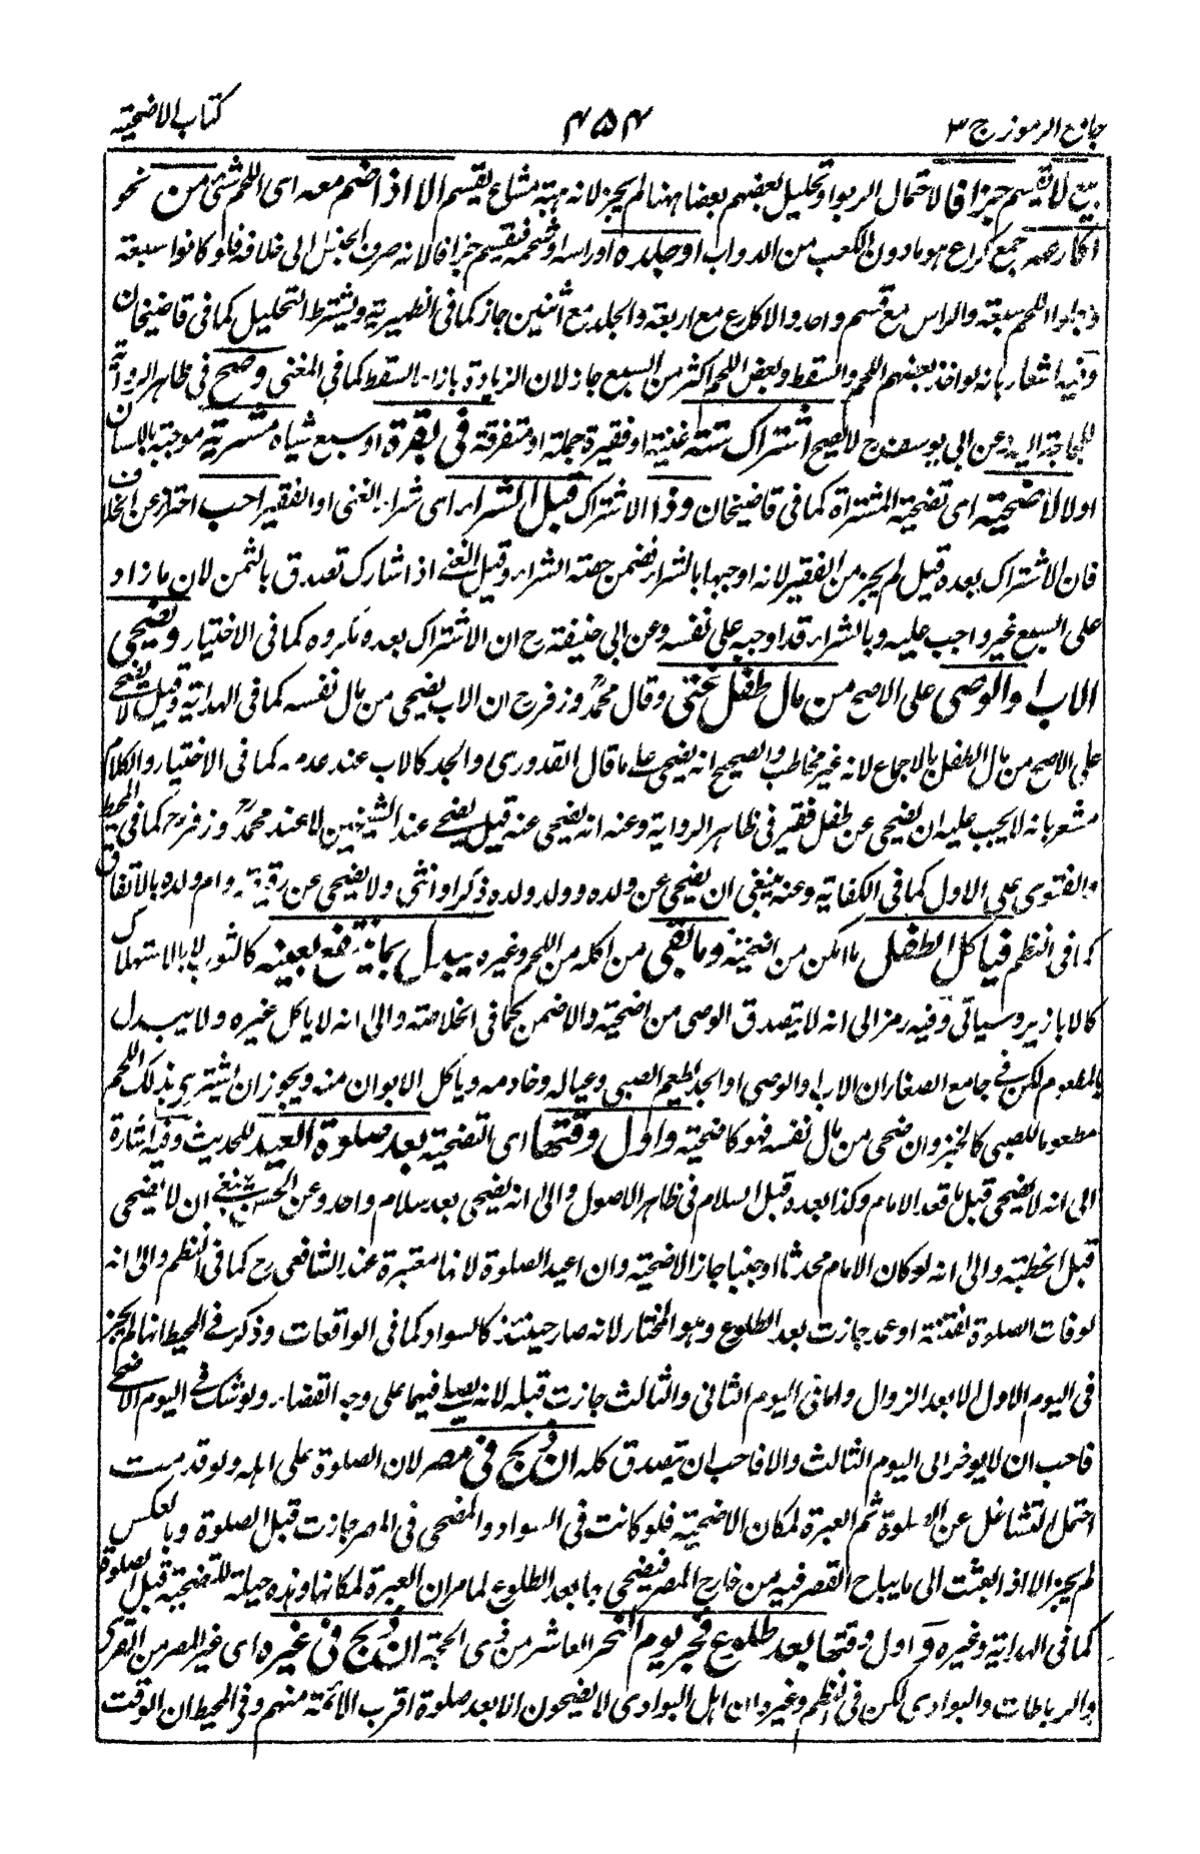 جامع الرموز ج ٣
٤٥٤
كتاب الاضحية
بيع لا يقسم جزافا لاحتمال الربوا وتحليل بعضهم بعضا ههنا لم يجز لانه هبة مشاع يقسم الا اذا ضم معه اى اللحم شئ من نحو
اكارعه جمع كراع هو ما دون الكعب من الدواب او جلده او راسه او شحمه فيقسم جزافا لانه صرف الجنس الى خلافه فلو كانوا سبعة
اللحم سبعة والراس مع قسم واحد والاكارع مع اربعة والجلد مع اثنين جاز كما فى الظهيرية ويشترط التحليل كما فى قاضيخان
وفيه اشعار بانه لو اخذ بعضهم اللحم والسقط وبعض اللحم اكثر من السبع جاز لان الزيادة بازاء السقط كما فى المغنى وصح فى ظاهر الرواية
للحاجة اليه وعن ابى يوسف رح لا يصح اشتراك ستة غنية او فقيرة جملة او متفرقة فى بقرة او سبع شياه مشترية موجبة بالاسان
او لا لاضحية اى تضحية المشتراة كما فى قاضيخان وذا الاشتراك قبل الشراء اى شراء الغنى او الفقير احب احترازا عن الخلاف
فان الاشتراك بعده قيل لم يجز من الفقير لانه اوجبها بالشراء فضمن حصة الشراء وقيل الغنى اذا شارك تصدق بالثمن لان ما زاد
على السبع غير واجب عليه وبالشراء قد اوجبه على نفسه وعن ابى حنيفة رح ان الاشتراك بعده مكروه كما فى الاختيار ويضحى
الاب او الوصى على الاصح من مال طفل غنى وقال محمد وزفر رح ان الاب يضحى من مال نفسه كما فى الهداية وقيل لا يضحى
على الاصح من مال الطفل بالاجماع لانه غير مخاطب والصحيح انه يضحى على ما قال القدورى والجد كالاب عند عدمه كما فى الاختيار والكلام
مشعر بانه لا يجب عليه ان يضحى عن طفل فقير فى ظاهر الرواية وعنه انه يضحى عنه قيل يضحى عند الشيخين لا عند محمد وزفر رح كما فى المحيط
والفتوى على الاول كما فى الكفاية وعنه ينبغى ان يضحى عن ولده وولد ولده ذكرا او انثى ولا يضحى عن رقيقه وام ولده بالاتفاق
كما فى النظم فياكل الطفل ما امكن من اضحيته وما بقى من اكله من اللحم وغيره يبدل بما ينتفع بعينه كالثوب لا بالاستهلاك
كالابازير وسيأتى وفيه رمز الى انه لا يتصدق الوصى من اضحيته والا ضمن كما فى الخلاصة والى انه لا ياكل غيره ولا يبدل
بالمطعوم لكن فى جامع الصغار ان الاب او الوصى او الجد يطعم الصبى وعياله وخادمه وياكل الابوان منه ويجوز ان يشترى بذلك اللحم
مطعوما للصبى كالخبز وان ضحى من مال نفسه فهو كاضحيته واول وقتها اى التضحية بعد صلوة العيد للحديث وفيه اشارة
الى انه لا يضحى قبل ما قعد الامام وكذا بعده قبل السلام فى ظاهر الاصول والى انه يضحى بعد سلام واحد وعن الحسن ينبغى ان لا يضحى
قبل الخطبة والى انه لو كان الامام محدثا او جنبا جاز الاضحية وان اعيد الصلوة لانها معتبرة عند الشافعى رح كما فى النظم والى انه
لو فات الصلوة لفتنة او عمد جازت بعد الطلوع وهو المختار لانه صار حينئذ كالسواد كما فى الواقعات وذكر فى المحيط انها لم يجز
فى اليوم الاول لا بعد الزوال واما فى اليوم الثانى والثالث جازت قبله لانه يصلى فيهما على وجه القضاء ولو شك فى اليوم الاضحى
فاحب ان لا يوخر الى اليوم الثالث والا فاحب ان يتصدق كله ان ذبح فى مصر لان الصلوة على اهله ولو قدمت
احتمل التشاغل عن الصلوة ثم العبرة لمكان الاضحية فلو كانت فى السواد والمضحى فى المصر جازت قبل الصلوة وبالعكس
لم يجز الا اذا بعثت الى ما يباح القصر فيه من خارج المصر فيضحى بها بعد الطلوع لما مر ان العبرة لمكانها وهذه حيلة للتضحية قبل الصلوة
كما فى الهداية وغيره و اول وقتها بعد طلوع فجر يوم النحر العاشر من ذى الحجة ان ذبح فى غيره اى غير المصر من القرى
والرباطات والبوادى لكن فى النظم وغيره ان اهل البوادى لا يضحون الا بعد صلوة اقرب الائمة منهم وفى المحيط ان الوقت